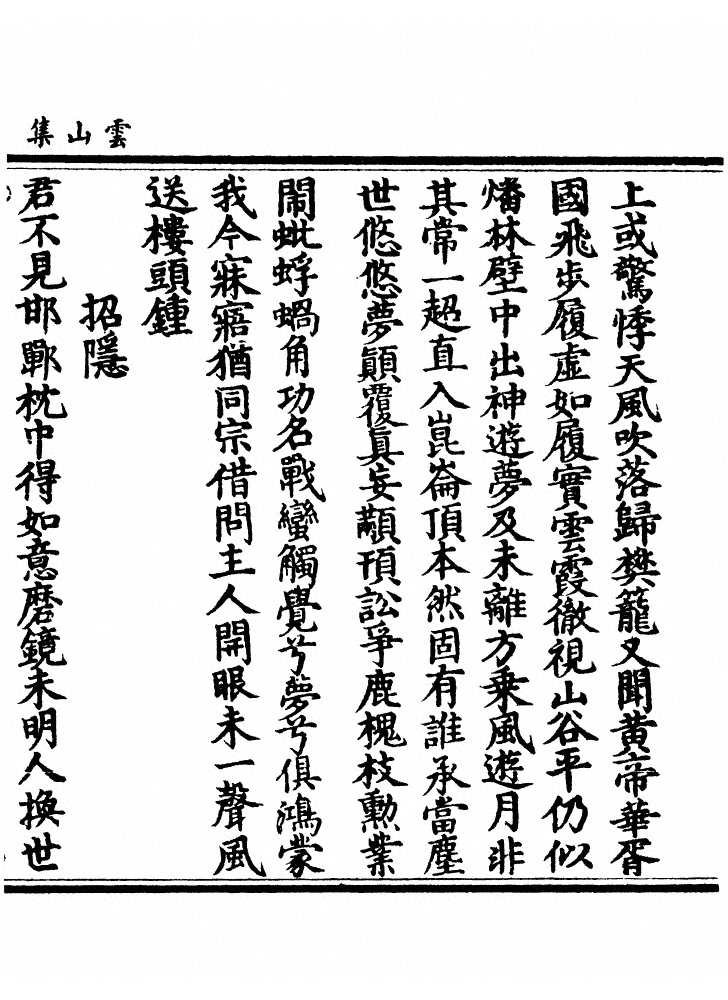 雲山集
上或驚悸天風吹落歸樊籠又聞黃帝華胥
國飛步履虛如履實雲霞徹視山谷平仍似
燔林壁中出神遊夢及未離方乗風遊月非
其常一超直入崑崙頂本然固有誰承當塵
世悠悠夢顛覆眞妄顢頇訟爭鹿槐枝勳業
閙蚍蜉蝸角功名戰蠻觸覺兮夢兮俱鴻蒙
我今寐寤猶同宗借問主人開眼未一聲風
送樓頭鍾
招隱
君不見邯鄲枕中得如意磨鏡未明人換世